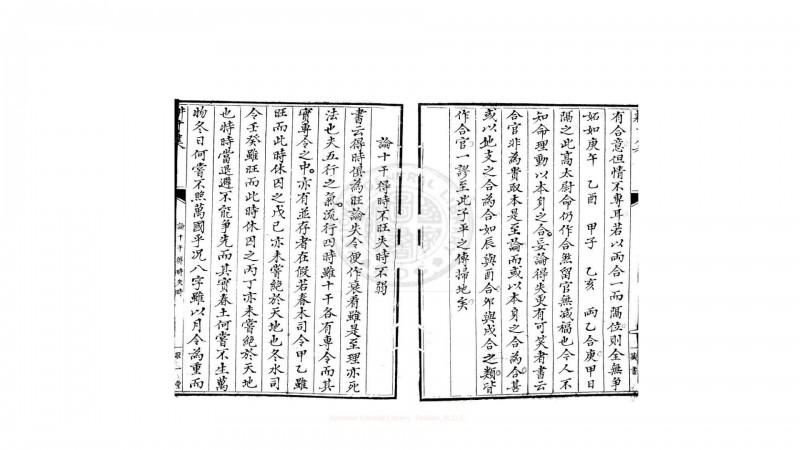 有合意但情不專耳若以兩合一而隔位則全無爭
妬如庚午　乙酉　甲子　乙亥　兩乙合庚甲日
隔之此高太尉命仍作合煞留官無減福也今人不
知命理動以本身之合妄論得失更有可笑者書云
合官非為貴取本是至論而或以本身之合為合甚
或以地支之合為合如辰與酉合卯與戌合之類皆
作合官一謬至此子平之傳掃地矣
論十干得時不旺失時不弱
書云得時俱為旺論失令便作衰看雖是至理亦死
法也夫五行之氣流行四時雖十干各有專令而其
實專令之中亦有並存者在假若春木司令甲乙雖
旺而此時休囚之戊己亦未嘗絕於天地也冬水司
令壬癸雖旺而此時休囚之丙丁亦未嘗絕於天地
也特時當退避不能爭先而其實春土何嘗不生萬
物冬日何嘗不照萬國乎况八字雖以月令為重而
論十干得時失時